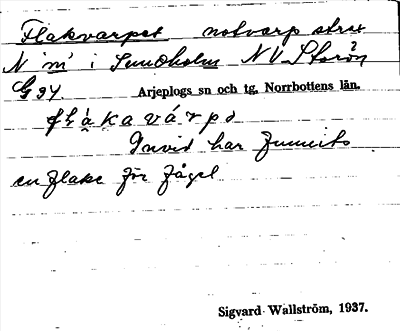 Flakvarpet notvarp strax
N "m" i Sundholm NV Storön
G 34. Arjeplogs sn och tg, Norrbottens län.
flákavárpə
Invid har funnits
en flake för fågel
Sigvard Wallström, 1937.